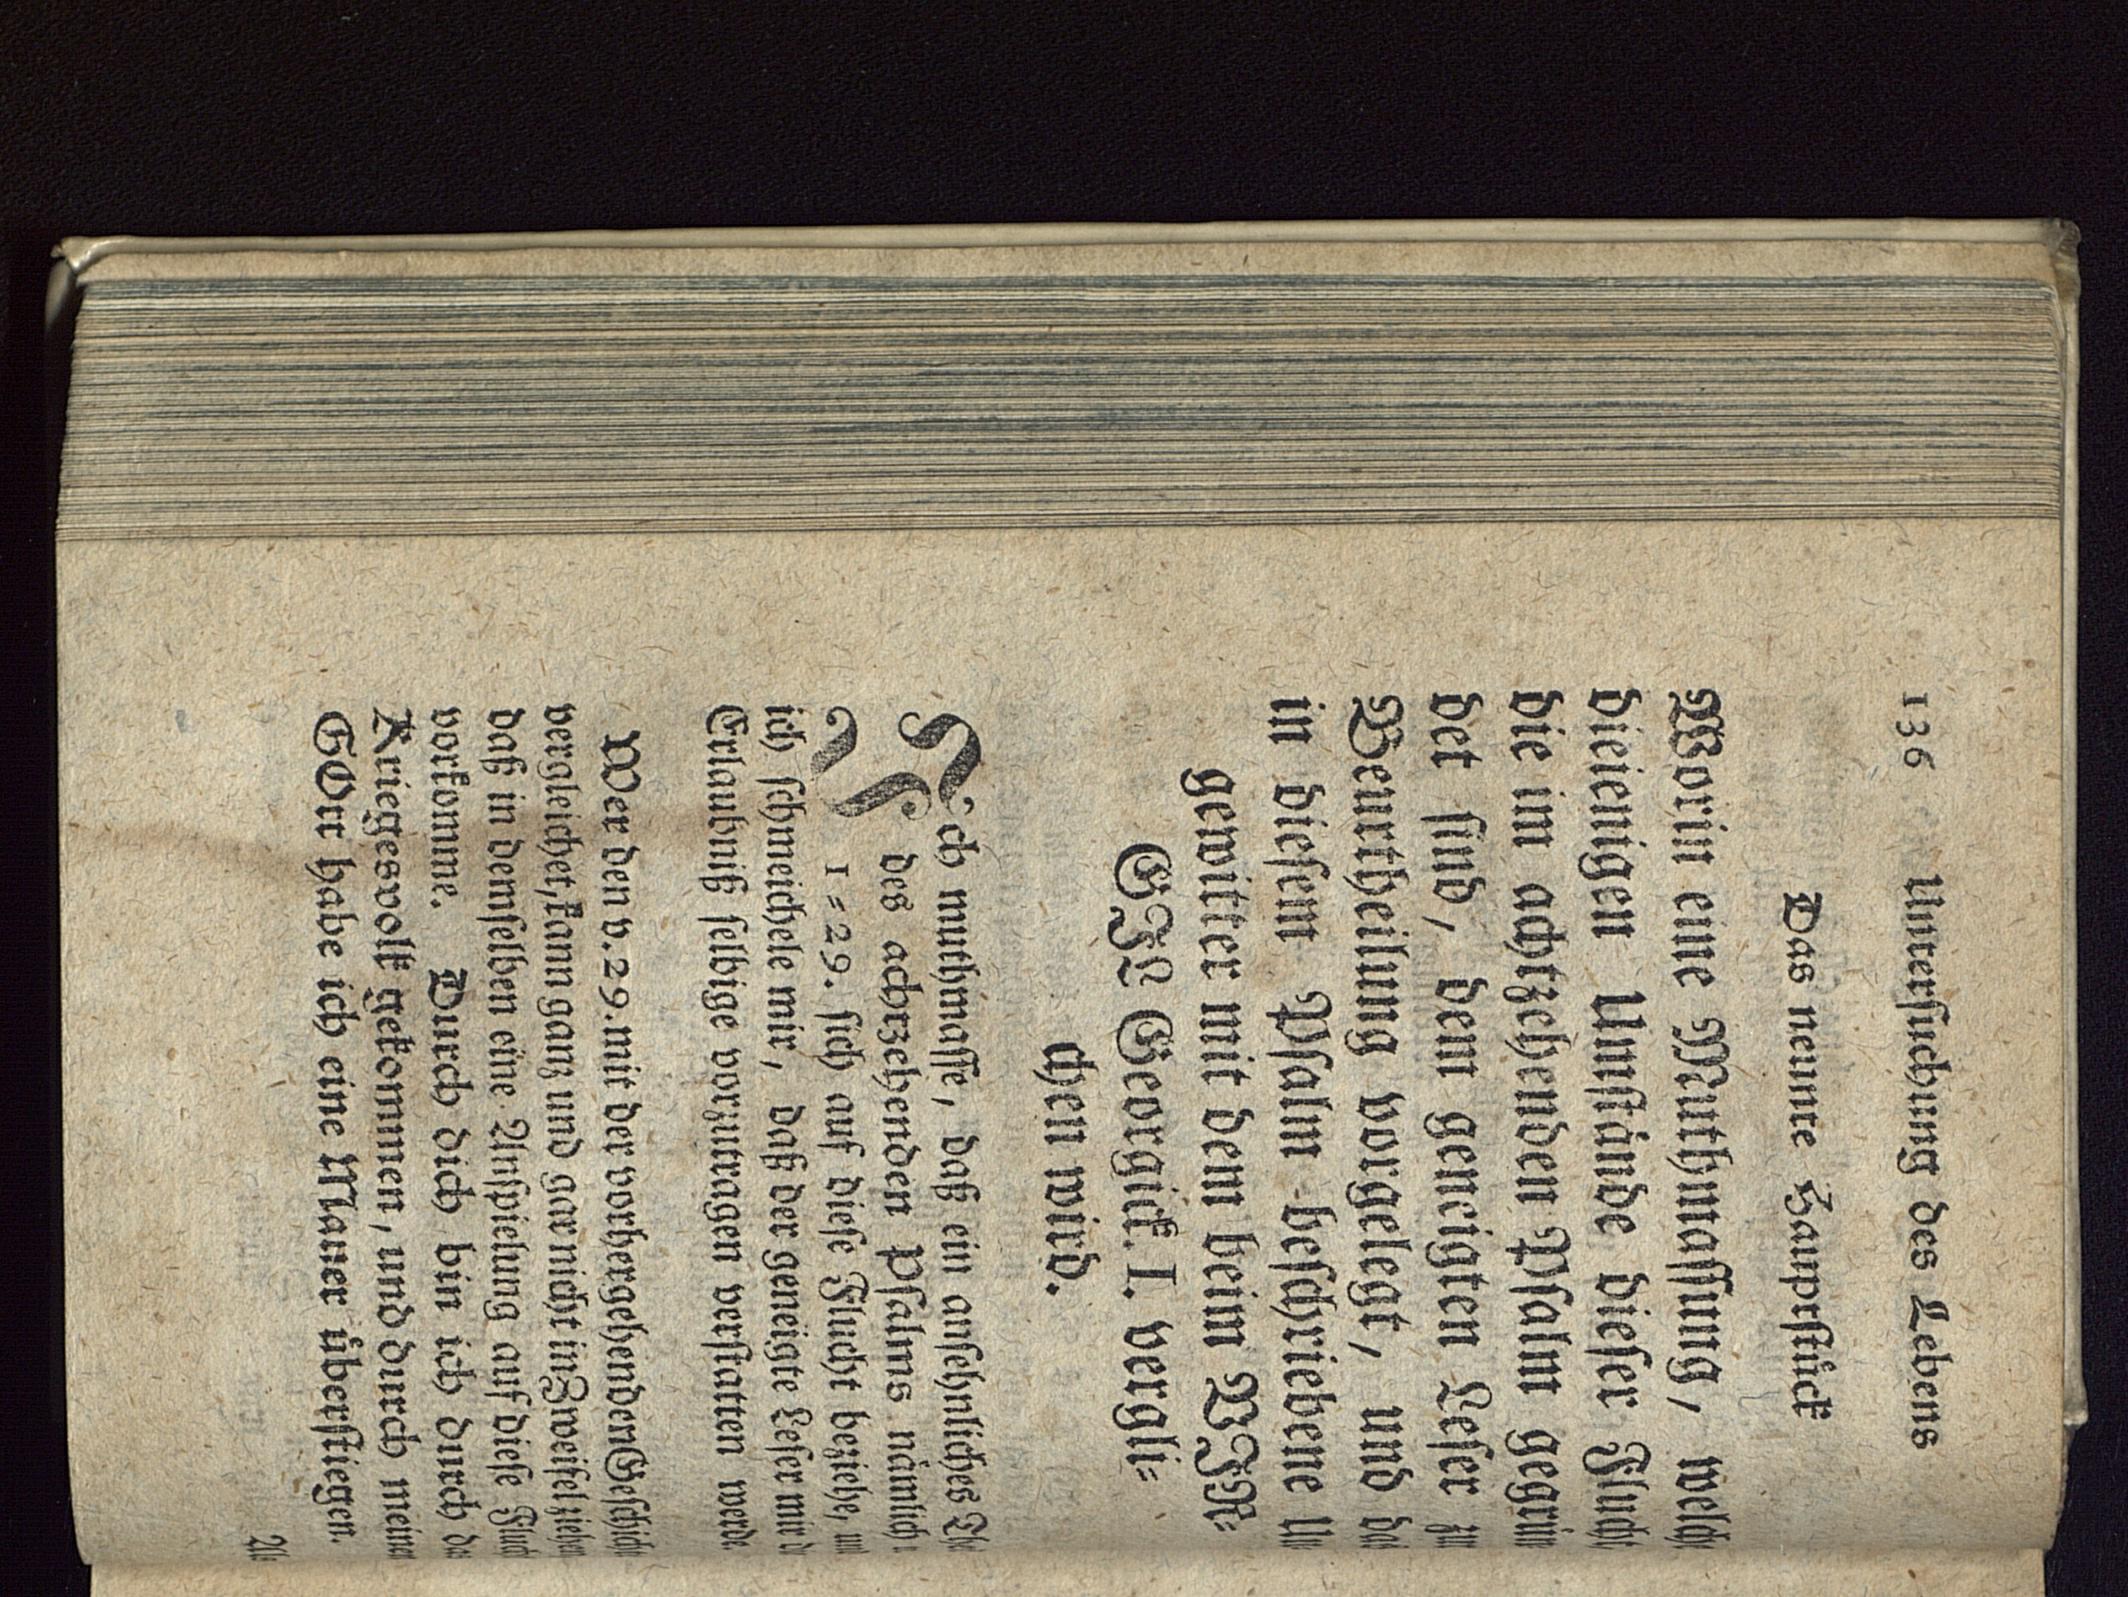 136 Unterſuchung des Lebens
Das neunte Hauptſtück
Worin eine Muthmaſſung, welche
dieienigen Umſtände dieſer Flucht
die im achtzehenden Pſalm gegrün
det ſind, dem geneigten Leſer zur
Beurtheilung vorgelegt, und das
in dieſem Pſalm beſchriebene Un
gewitter mit dem beim WJR⸗
GJL Georgick. I. vergli⸗
chen wird.
Jch muthmaſſe, daß ein anſehnliches
des achtzehenden Pſalms nämlich
1⸗29. ſich auf dieſe Flucht beziehe, und
ich ſchmeichele mir, daß der geneigte Leſer mir die
Erlaubniß ſelbige vorzutragen verſtatten werde.
Wer den v. 29. mit der vorhergehenden Geſchicht
vergleichet, kann ganz und gar nicht in Zweifel ziehen
daß in demſelben eine Anſpielung auf dieſe Flucht
vorkomme. Durch dich bin ich durch das
Kriegesvolk gekommen, und durch meinen
GOtt habe ich eine Mauer überſtiegen.